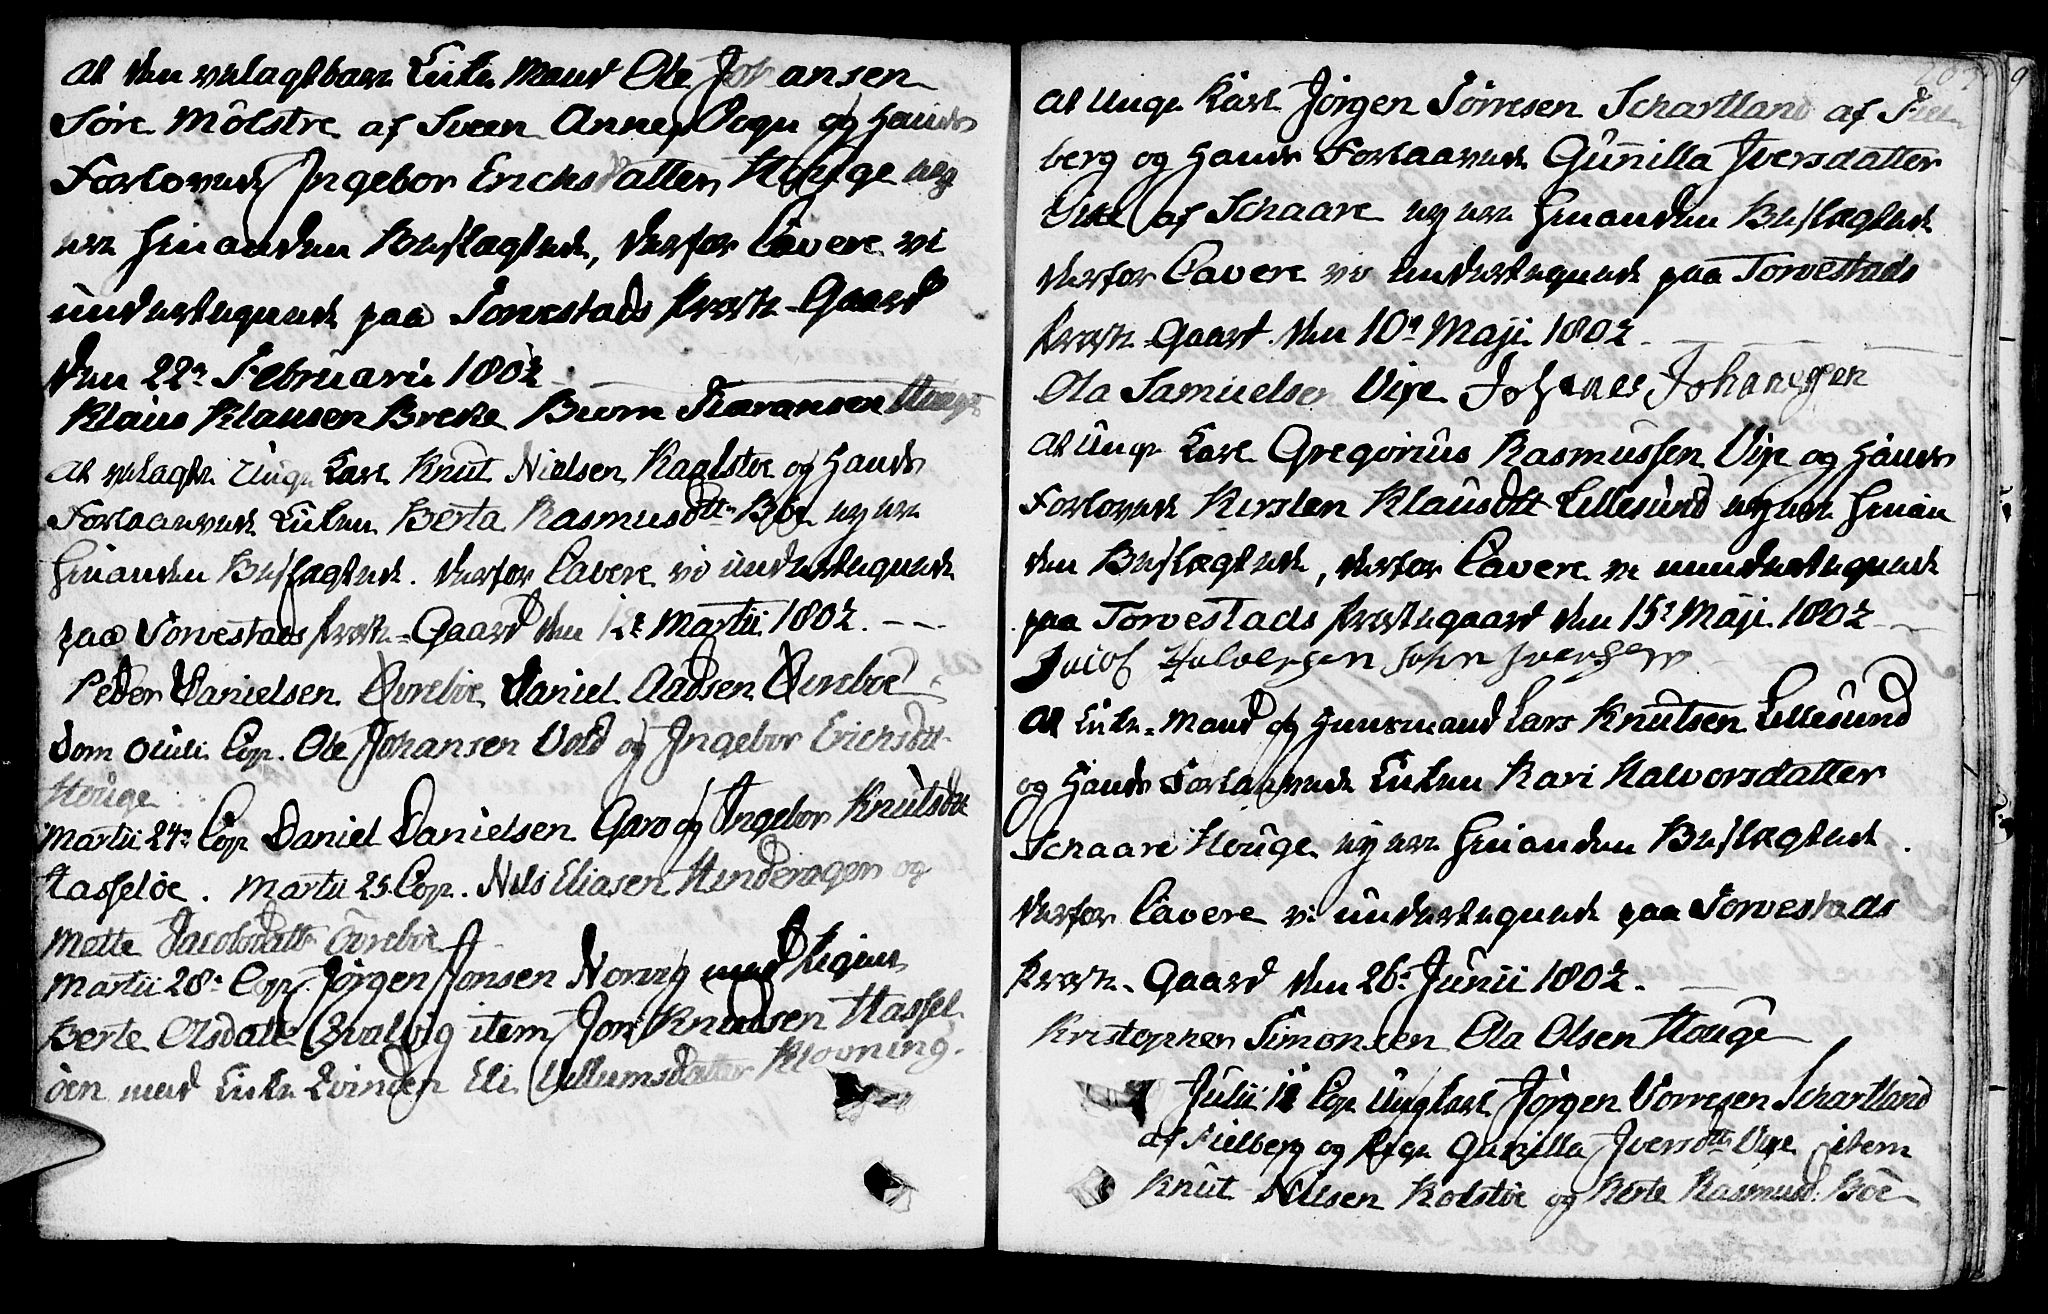 At den velagtbare Enke Mand Ole Johansen
Søre Mölstre af Sveen Annex Sogn og Hands
Forlovede Ingebor Erichsdatter Houge ney
ere hinanden Beslægtede, derfor Cavere vi
underteqnede paa Torvestads Præste-Gaard
den 22n Februarii 1802
Klaus Klausen Breke Biørn Siøransen Houge
At velagte Unge Karl Knut Nielsen Kaalstøe og Hands
Forlaavede Enken Berta Rasmusdttr Bøe ey ere
hinanden Beslægtede. derfor Cavere vi underteqnede
paa Torvestads Præste-Gaard den 12t Martii 1802.
Peder Danielsen Øvreböe Daniel Aadsen Øvreböe
Dom Oculi Cop. Ole Johansen Vold og Ingebor Erichsdtt
Houge
Martii 24n Cop Daniel Danielsen Garo og Ingebor Knutsdtt
Hasseløe. Martii 25 Cop. Nils Eliasen Hinderagen og
Mette Jacobsdattr Övreböe
Martii 28n Cop. Jørgen Jonsen Norvig med Pigen
Berte Olsdatter Qvalvig item Jon Knudsen Hassel
öen med Enke Qvinden Eli Villumsdatter Klovning.
At Unge Karl Jörgen Torresen Schartland af Fiel
berg og Hands Forlaavede Gunilla Iversdatter
Vixe af Schaare ey ere hinanden Beslægtede
derfor Cavere vi underteqnede paa Torvestads
Præste-Gaard den 10n Maji 1802
Ola Samuelsen Vixe Johanes Johanesen
At Unge Karl Gregorius Rasmussen Vixe og Hands
Forlovede Kirsten Klausdtt Lillesund ey ere hinan
den Beslægtede, derfor Cavere vi underteqnede
paa Torvestads Præstegaard den 15n Maji 1802
Jacob Halversen John Iversen
At Enke-Mand og Huusmand Lars Knutsen Lillesund
og Hands Forlaavede Enken Kari Halvorsdatter
Schaare Houge ey ere hinanden Beslægtede.
derfor Cavere vi underteqnede paa Torvestads
Præste-Gaard den 26n Junii 1802.
Kristopher Simonsen Ola Olsen Houge
Julii 11 Cop Ungkarl Jörgen Torresen Schartland
af Fielberg og Pige Gunilla Iversdtt Vixe item
Knut Nilsen Kolstöe og Berte Rasmusd. Böe